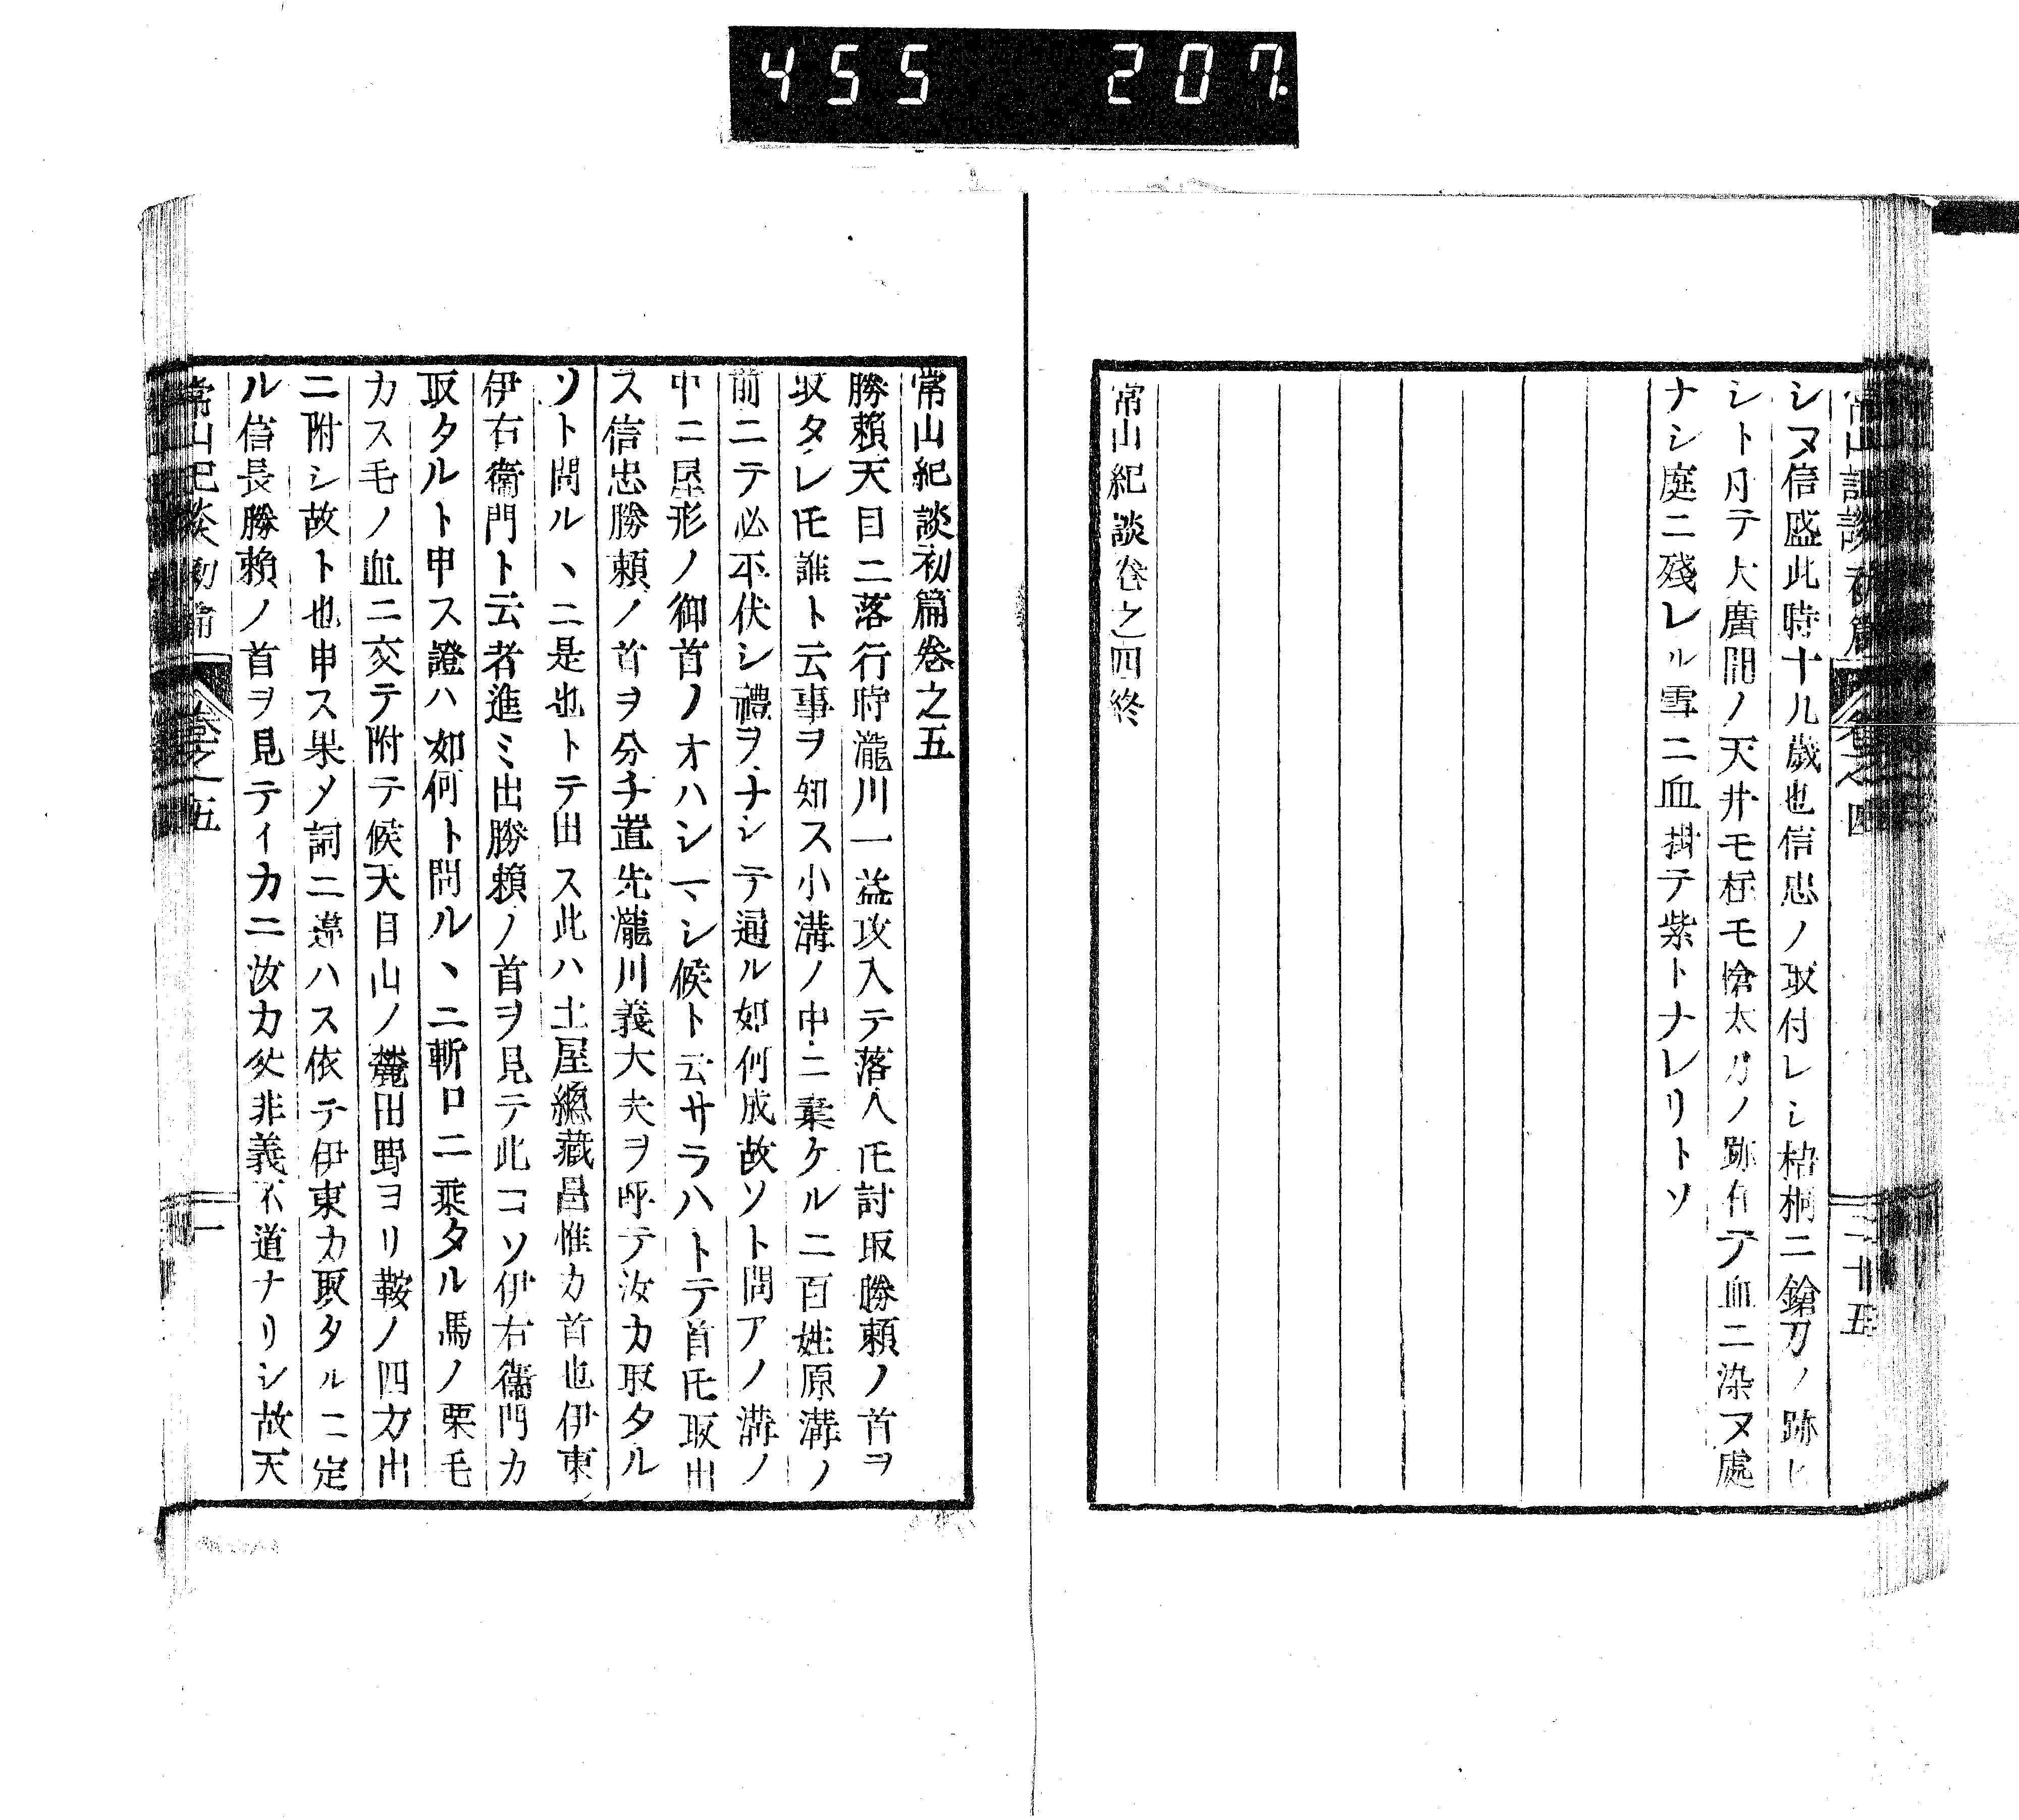 455 207
シヌ信盛此時十九歳也信忠ノ取付レシ梧桐ニ鎗刀ノ跡ヒ
シト付テ大廣間ノ天井モ柱モ愴太刀ノ跡有テ血ニ染ヌ處
ナシ庭ニ殘レル雪ニ血掛テ紫トナレリトソ
常山紀談卷之四終
常山紀談初篇卷之五
勝賴天目ニ落行時瀧川一益攻入テ落人𪜈討取勝賴ノ首ヲ
取タレ𪜈誰ト云事ヲ知ス小溝ノ中ニ棄ケルニ百姓原溝ノ
前ニテ必平伏シ禮ヲナシテ通ル如何成故ソト問アノ溝ノ
中ニ屋形ノ御首ノオハシマシ候ト云サラハトテ首𪜈取出
ス信忠勝賴ノ首ヲ分チ置先瀧川義大夫ヲ呼テ汝カ取タル
ソト問ル丶ニ是也トテ出ス此ハ土屋總藏昌惟カ首也伊東
伊右衞門ト云者進ミ出勝賴ノ首ヲ見テ此コソ伊右衞門カ
取タルト申ス證ハ如何ト問ル丶ニ斬口ニ乘タル馬ノ栗毛
カス毛ノ血ニ交テ附テ候天目山ノ麓田野ヨリ鞍ノ四方出
ニ附シ故ト也申ス果メ詞ニ違ハス依テ伊東カ取タルニ定
ル信長勝賴ノ首ヲ見テイカニ汝カ父非義不道ナリシ故天
常山紀談初篇 卷之五 一